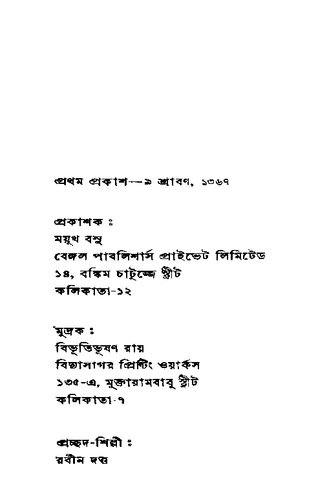 প্রথম প্রকাশ—৯ শ্রাবণ, ১৩৬৭
প্রকাশক :
ময়ূখ বসু
বেঙ্গল পাবলিশার্স প্রাইভেট লিমিটেড
১৪, বঙ্কিম চাটুজ্জে স্ট্রীট
কলিকাতা-১২
মুদ্রক :
বিভূতিভূষণ রায়
বিদ্যাসাগর প্রিন্টিং ওয়ার্কস
১৩৫-এ, মুক্তারামবাবু স্ট্রীট
কলিকাতা-৭
প্রচ্ছদ-শিল্পী :
রবীন দত্ত